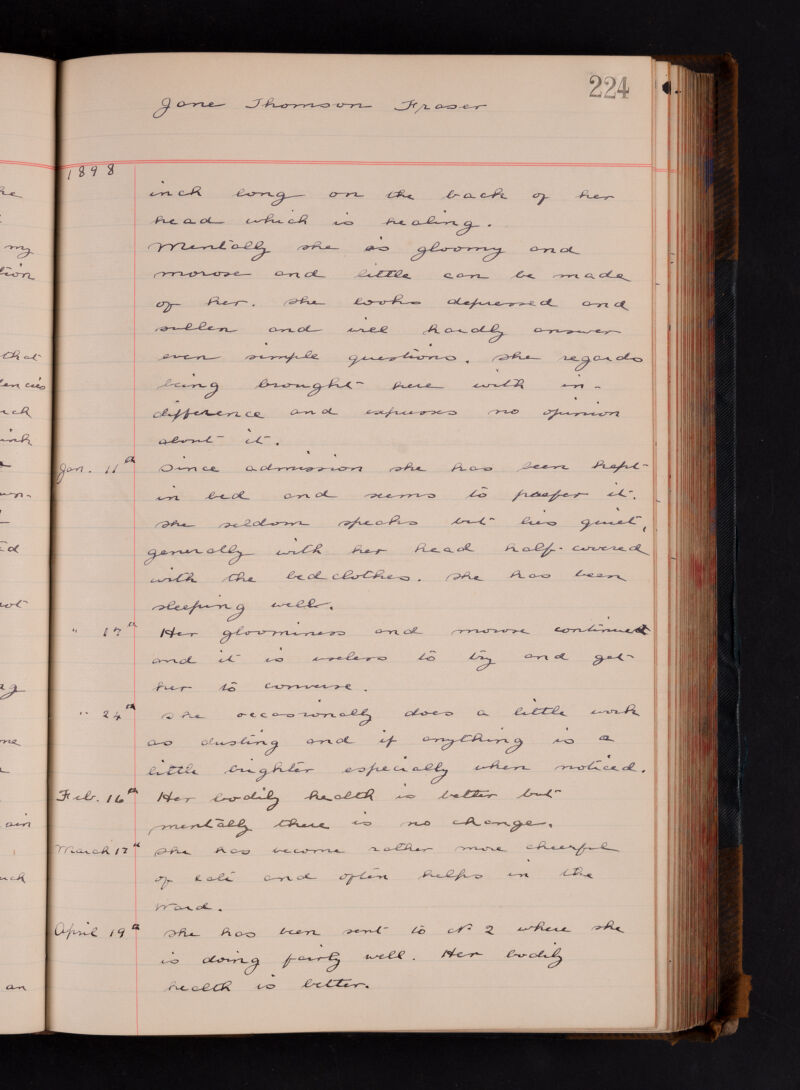 224
Jane Thomson Fraser
1898
inch long on the back of her
head which is healing.
Mentally she is gloomy and
morose and little can be made
of her. She looks depressed and
sullen and will hardly answer
even simple questions. She regards
being brought here with in-
difference and expresses no opinion
about it.
Jan. 11th Since admission she has been kept
in bed and seems to prefer it.
She seldom speaks but lies quiet,
generally with her head half-covered
with the bedclothes. She has been
sleeping well.
" 17th Her gloominess and morose continued
and it is useless to try and get
her to converse.
" 24th She occasionally does a little work
as dusting and if anything is a
little brighter especially when noticed.
Feb. 16th Her bodily health is better but
mentally there is no change.
March 17th She has become rather more cheerful
of late and often helps in the
ward.
April 19th She has been sent to No 2 where she
is doing fairly well. Her bodily
health is better.